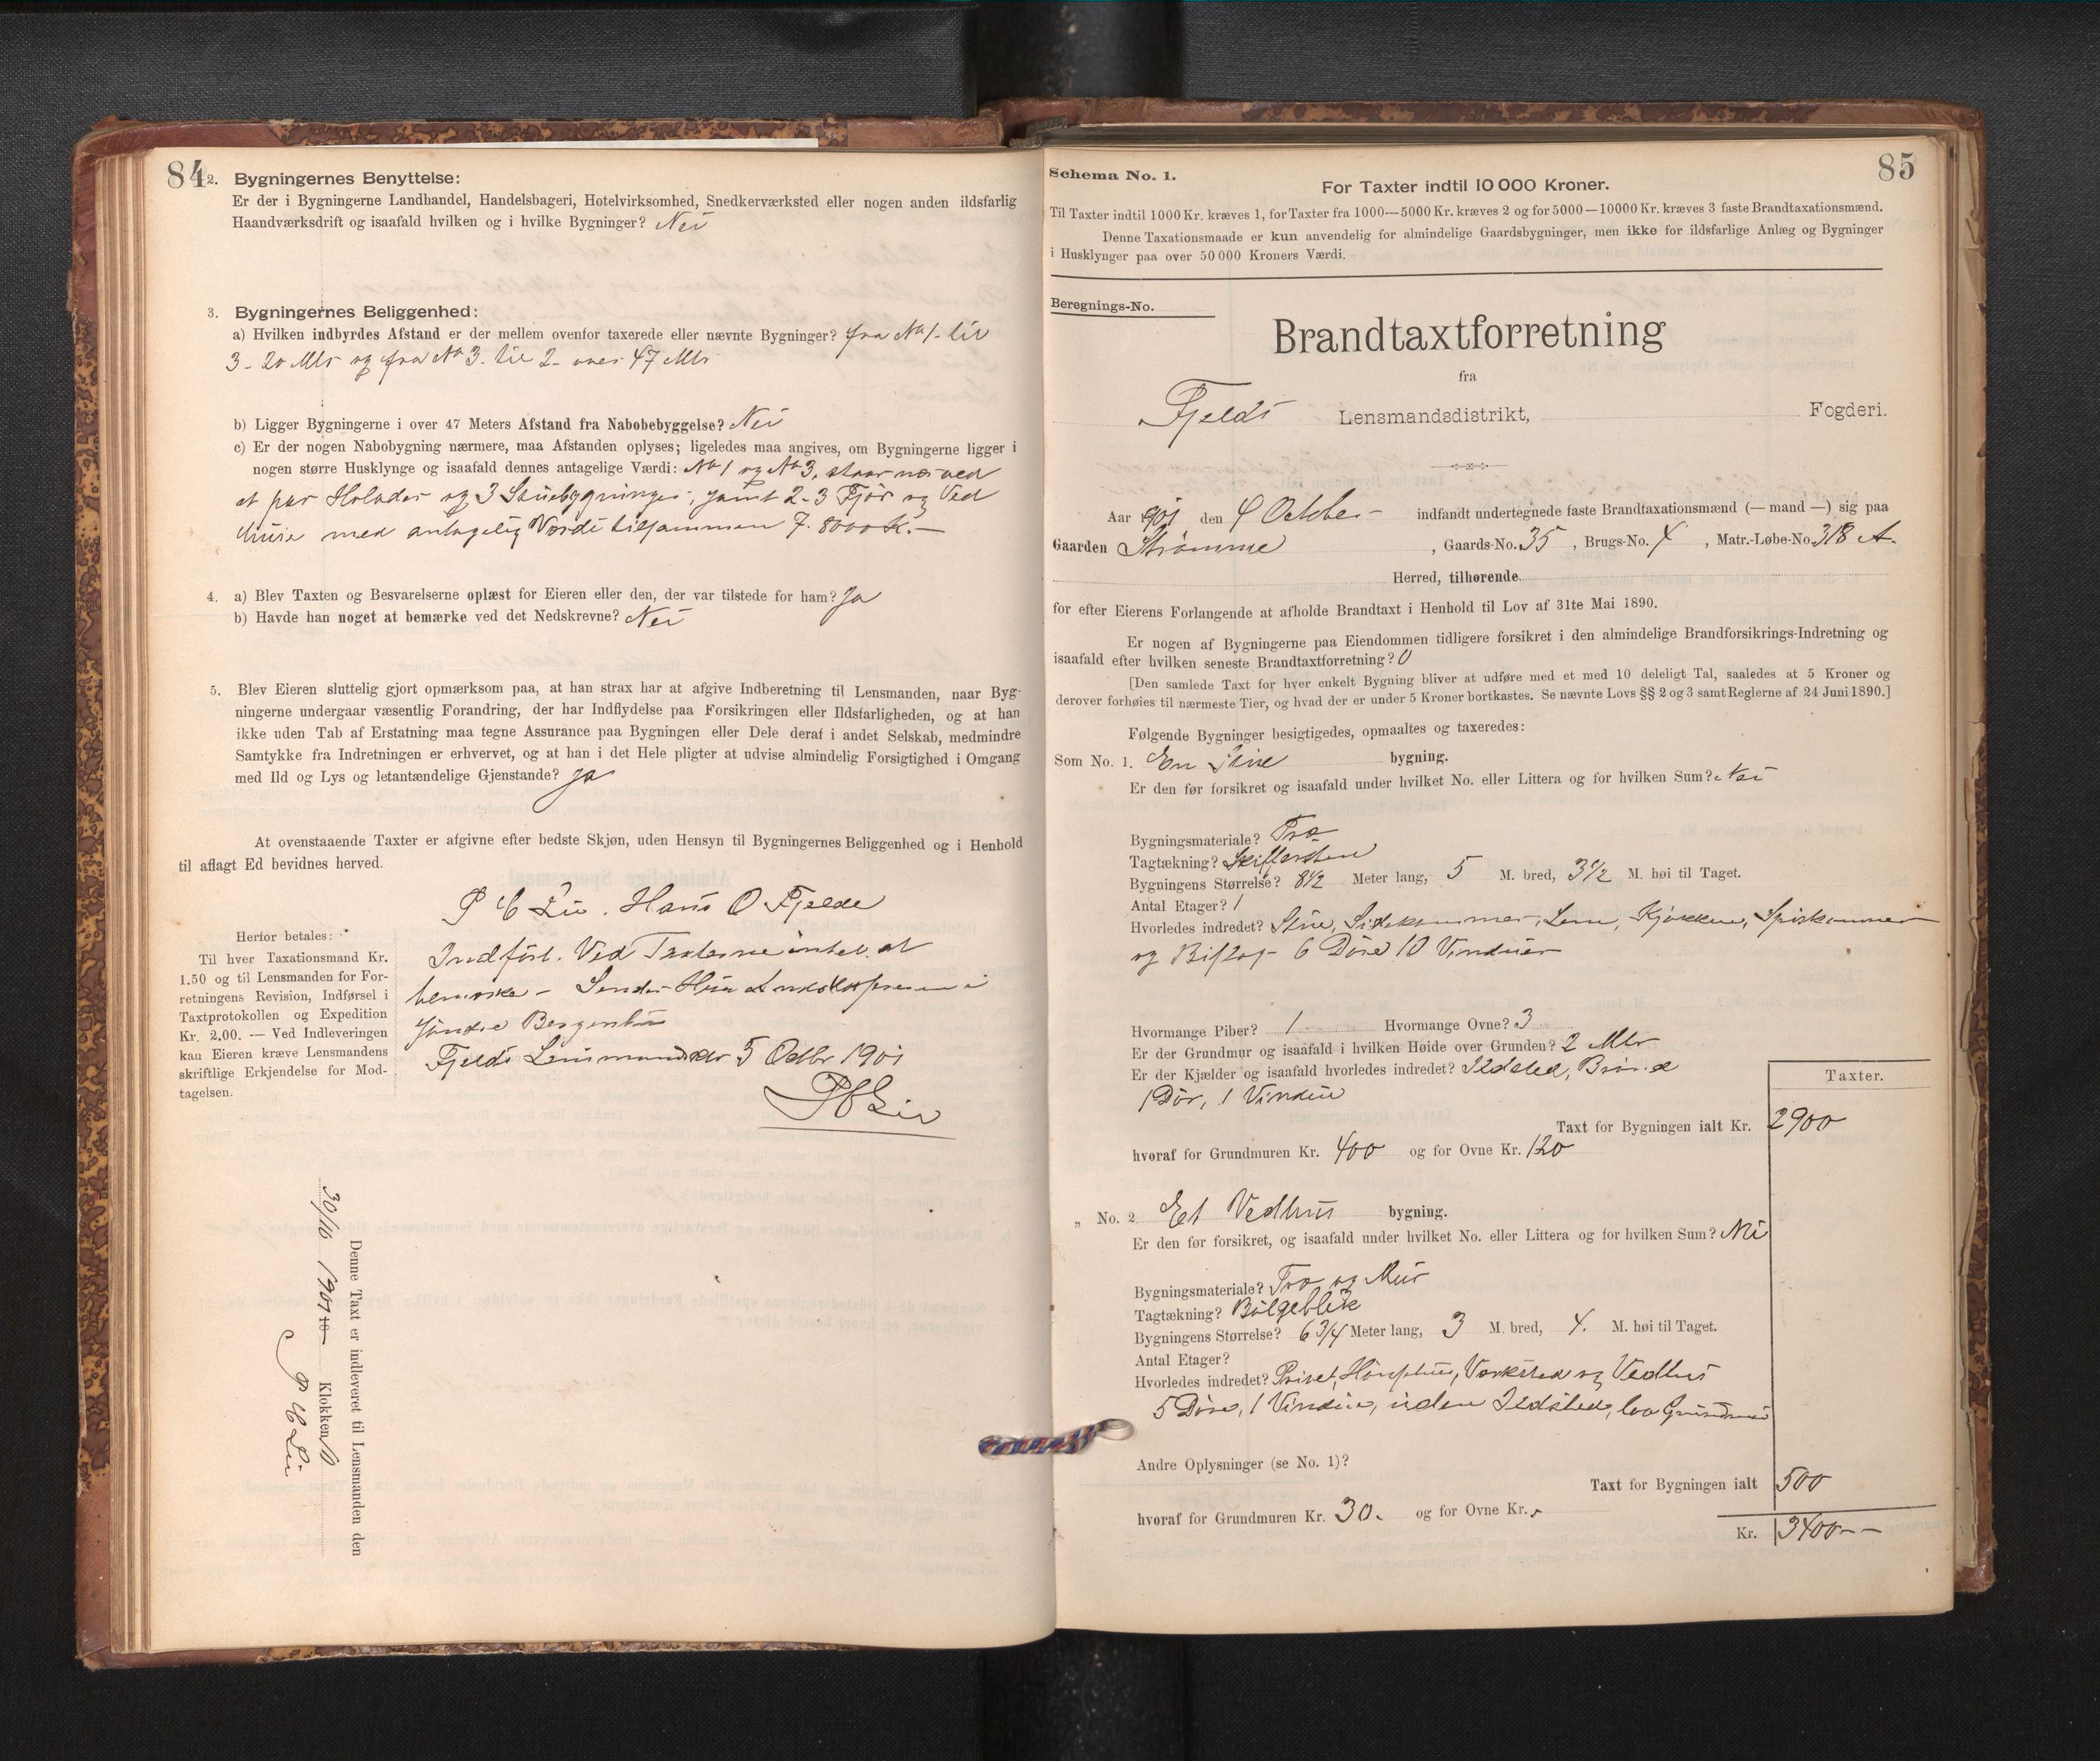 84
2. Bygningernes Benyttelse:
Er der i Bygningerne Landhandel, Handelsbageri, Hotelvirksomhed, Snedkerværksted eller nogen anden ildsfarlig
Haandværksdrift og isaafald hvilken og i hvilke Bygninger? Nei
3. Bygningernes Beliggenhed:
a) Hvilken indbyrdes Afstand er der mellem ovenfor taxerede eller nævnte Bygninger? fra No 1. til
3 - 20 Mtr og fra No 3. til 2 - over 47 Mtr
b) Ligger Bygningerne i over 47 Meters Afstand fra Nabobebyggelse? Nei
c) Er der nogen Nabobygning nærmere, maa Afstanden oplyses; ligeledes maa angives, om Bygningerne ligger i
nogen større Husklynge og isaafald dennes antagelige Værdi: No 1 og No 3, staar nær ved
et par Holader og 3 Stuebygninger, samt 2-3 Fjør og Ved
huse med antagelig Værdi tilsammen 7-8000 K. —
4. a) Blev Taxten og Besvarelserne oplæst for Eieren eller den, der var tilstede for ham? Ja
b) Havde han noget at bemærke ved det Nedskrevne? Nei
5. Blev Eieren sluttelig gjort opmærksom paa, at han strax har at afgive Indberetning til Lensmanden, naar Byg-
ningerne undergaar væsentlig Forandring, der har Indflydelse paa Forsikringen eller Ildsfarligheden, og at han
ikke uden Tab af Erstatning maa tegne Assurance paa Bygningen eller Dele deraf i andet Selskab, medmindre
Samtykke fra Indretningen er erhvervet, og at han i det Hele pligter at udvise almindelig Forsigtighed i Omgang
med Ild og Lys og letantændelige Gjenstande? Ja
At ovenstaaende Taxter er afgivne efter bedste Skjøn, uden Hensyn til Bygningernes Beliggenhed og i Henhold
til aflagt Ed bevidnes herved.
P C Lie. Hans O Fjelde
Indført. Ved Taxterne intet at
bemærke - Sendes Hrr
Søndre Bergenhus
Fjelds Lensmandsktr 5 Octbr 1901
P C Lie
Herfor betales:
Til hver Taxationsmand Kr.
1.50 og til Lensmanden for For-
retningens Revision, Indførsel i
Taxtprotokollen og Expedition
Kr. 2.00. — Ved Indleveringen
kan Eieren kræve Lensmandens
skriftlige Erkjendelse for Mod-
tagelsen.
Denne Taxt er indleveret til Lensmanden den
30/10 1901 18 Klokken 10
P C Lie
85
Schema No. 1.
For Taxter indtil 10 000 Kroner.
Til Taxter indtil 1000 Kr. kræves 1, for Taxter fra 1000—5000 Kr. kræves 2 og for 5000—10000 Kr. kræves 3 faste Brandtaxationsmænd.
Denne Taxationsmaade er kun anvendelig for almindelige Gaardsbygninger, men ikke for ildsfarlige Anlæg og Bygninger
i Husklynger paa over 50 000 Kroners Værdi.
Beregnings-No.
Brandtaxtforretning
fra
Fjelds Lensmandsdistrikt, Fogderi.
Aar 901 den 4 October - indfandt undertegnede faste Brandtaxationsmænd (— mand —) sig paa
Gaarden Strømme, Gaards-No. 35, Brugs-No. 4, Matr.-Løbe-No. 318 A.
Herred, tilhørende
for efter Eierens Forlangende at afholde Brandtaxt i Henhold til Lov af 31te Mai 1890.
Er nogen af Bygningerne paa Eiendommen tidligere forsikret i den almindelige Brandforsikrings-Indretning og
isaafald efter hvilken seneste Brandtaxtforretning? 0
[Den samlede Taxt for hver enkelt Bygning bliver at udføre med et med 10 deleligt Tal, saaledes at 5 Kroner og
derover forhøies til nærmeste Tier, og hvad der er under 5 Kroner bortkastes. Se nævnte Lovs §§ 2 og 3 samt Reglerne af 24 Juni 1890.]
Følgende Bygninger besigtigedes, opmaaltes og taxeredes:
Som No. 1. En Stue bygning.
Er den før forsikret og isaafald under hvilket No. eller Littera og for hvilken Sum? Nei
Bygningsmateriale? Træ
Tagtækning? Skiffersten
Bygningens Størrelse? 8 1/2 Meter lang, 5 M. bred, 3 1/2 M. høi til Taget.
Antal Etager? 1
Hvorledes indredet? Stue, Sidekammer, Lem, Kjøkken, Spiskammer
og Bislag - 6 Døre 10 Vinduer
Hvormange Piber? 1 Hvormange Ovne? 3
Er der Grundmur og isaafald i hvilken Høide over Grunden? 2 Mtr
Er der Kjælder og isaafald hvorledes indredet? Ildsted, Brønd
1 Dør, 1 Vindue
Taxter.
Taxt for Bygningen ialt Kr. 2900
hvoraf for Grundmuren Kr. 400 og for Ovne Kr. 120
„ No. 2. Et Vedhus bygning.
Er den før forsikret, og isaafald under hvilket No. eller Littera og for hvilken Sum? Nei
Bygningsmateriale? Træ og Mur
Tagtækning? Bølgeblik
Bygningens Størrelse? 6 3/4 Meter lang, 3 M. bred, 4. M. høi til Taget.
Antal Etager?
Hvorledes indredet? Privet, Hønsehus, Værksted og Vedhus
5 Døre, 1 Vindue, uden Ildsted, lav Grundmur
Andre Oplysninger (se No. 1)?
Taxt for Bygningen ialt 500
hvoraf for Grundmuren Kr. 30. og for Ovne Kr. -
Kr. 3400 --